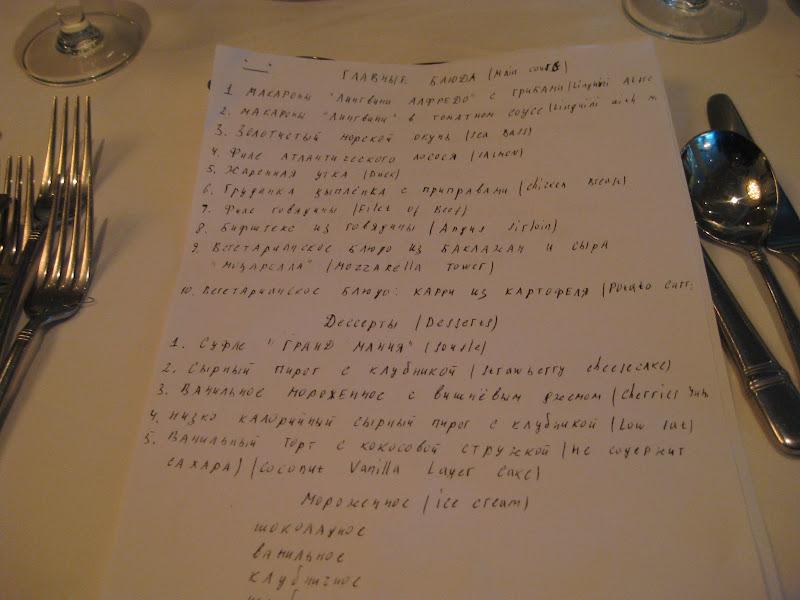 ГЛАВНЫЕ БЛЮДА (Main course)
1. МАКАРОНЫ "Лингвини АЛФРЕДО" с ГРИБАМИ (Linguini
2. МАКАРОНЫ "Лингвини" в томатном соусе (Linguini with
3. Золотистый морской окунь (Sea Bass)
4. Филе атлантического лосося (SALMON)
5. Жаренная утка (Duck)
6. Грудинка цыплёнка с приправами (Chicken Breast)
7. Филе говядины (Filet of Beef)
8. Бифштекс из говядины (Angus Sirloin)
9. Вегетарианское блюдо из баклажан и сыра
"моцарелла" (Mozzarella Tower)
10. Вегетарианское блюдо: карри из картофеля (Potato Curr
Дессерты (Desserts)
1. Суфле "ГРАНД МАНИЯ" (Soufle)
2. Сырный пирог с клубникой (Strawberry cheesecake)
3. Ванильное мороженное с вишнёвым джемом (Cherries Jub
4. Низко калорийный сырный пирог с клубникой (Low fat)
5. Ванильный торт с кокосовой стружкой (Не содержит
сахара) (Coconut Vanilla Layer Cake)
Мороженное (ice cream)
шоколадное
ванильное
клубничное